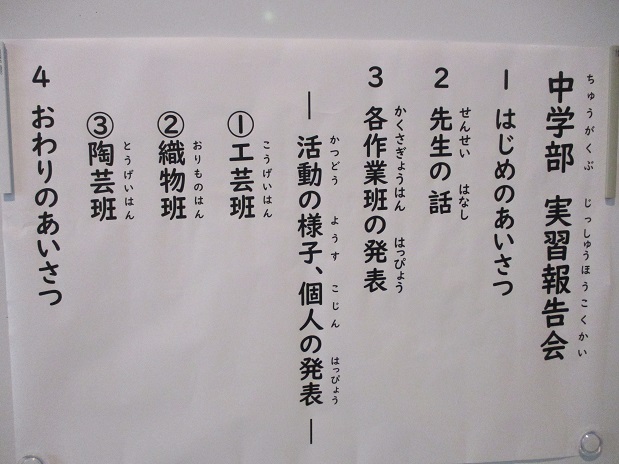 中学部 実習報告会
ちゅうがくぶ じっしゅうほうこくかい
1 はじめのあいさつ
2 先生の話
せんせい はなし
3 各作業班の発表
かくさぎょうはん はっぴょう
―活動の様子、個人の発表―
かつどう ようす こじん はっぴょう
①工芸班
こうげいはん
②織物班
おりものはん
③陶芸班
とうげいはん
4 おわりのあいさつ